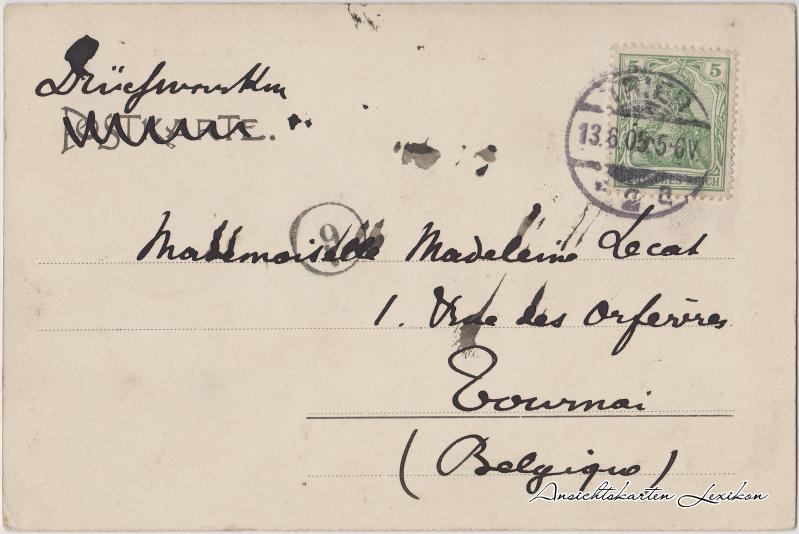 Drucksachen
POSTKARTE.
5 5
TRIER
13.6.05.5-6V.
* 2 a
DEUTSCHES REICH
9
Mademoiselle Madeleine Lecat
1. Rue des Orfèvres
Tournai
(Belgique)
Ansichtskarten Lexikon